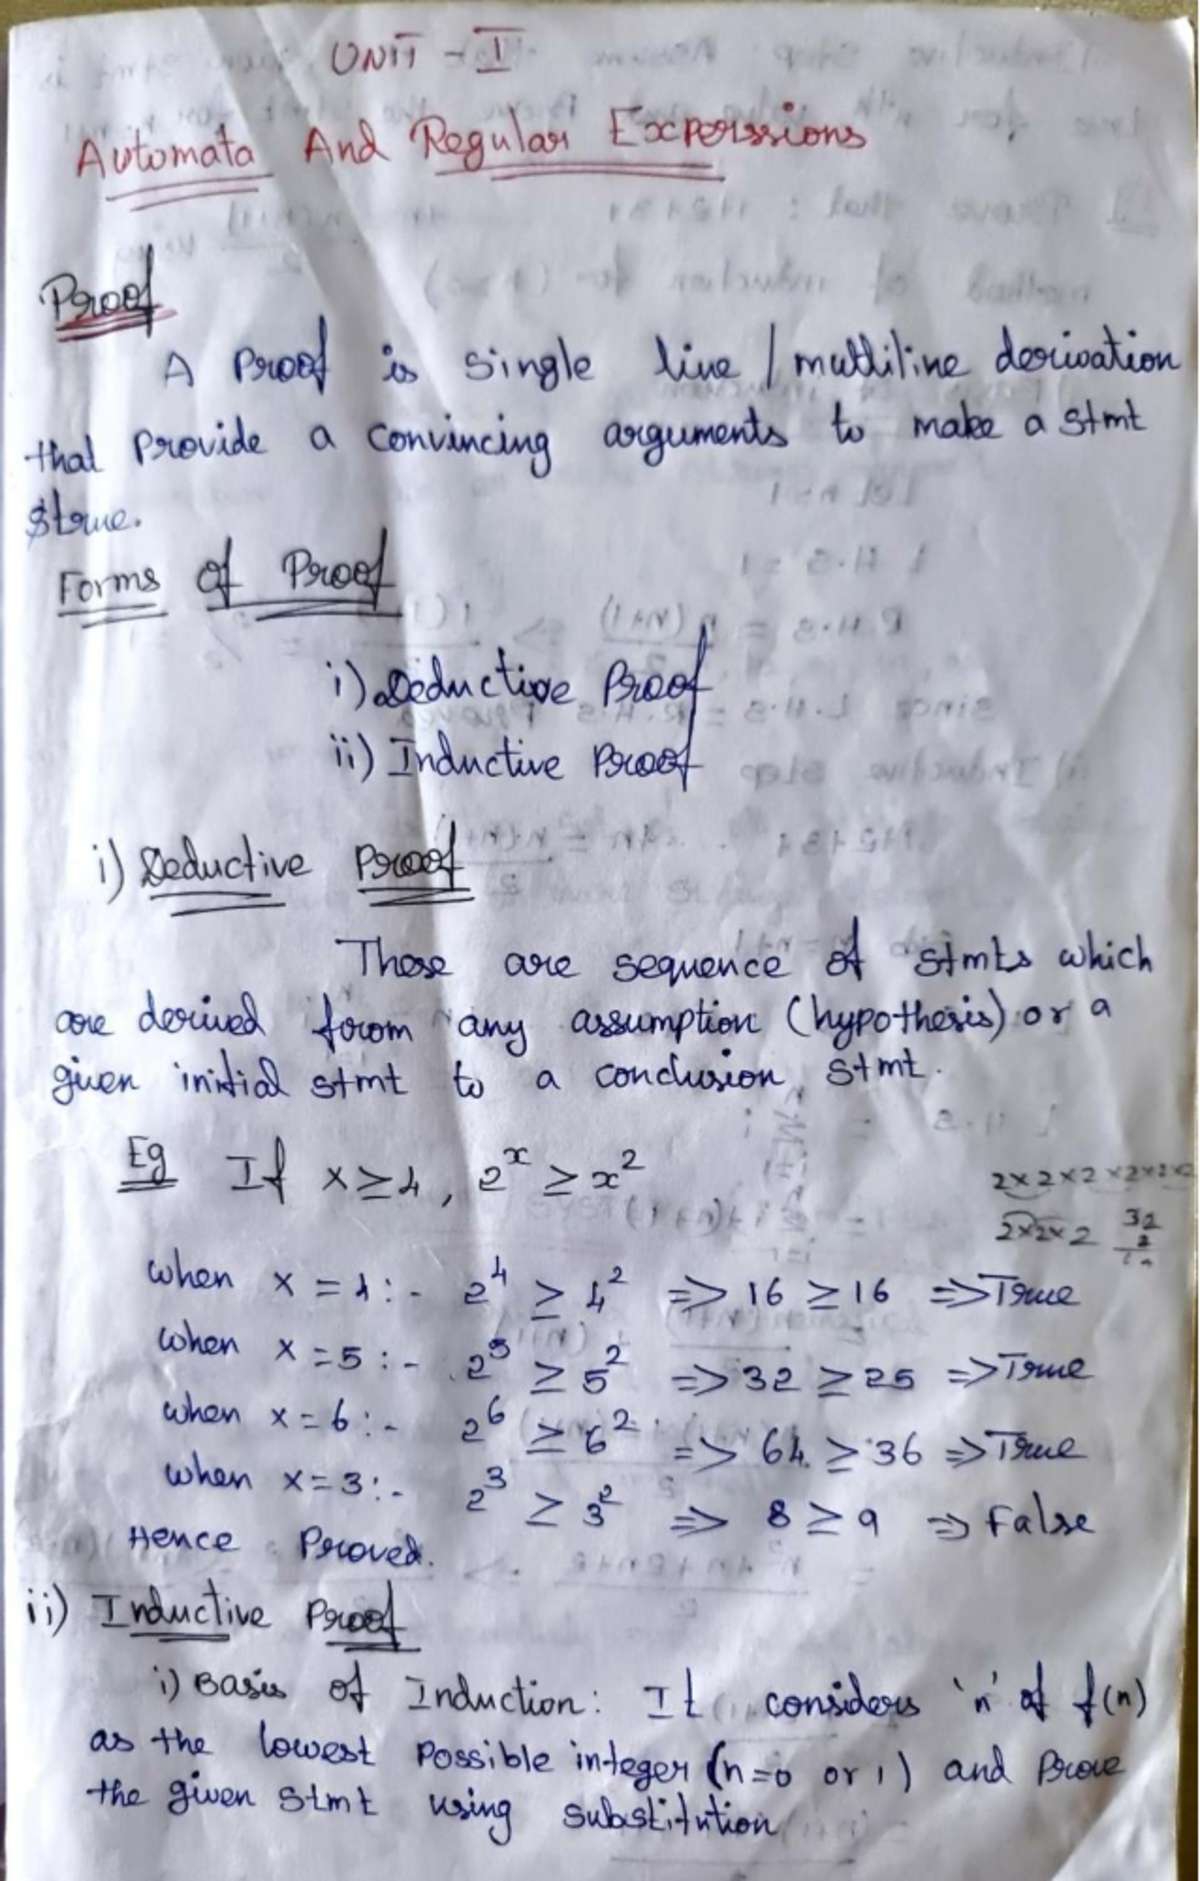 UNIT - I
Automata And Regular Experssions
Proof
A Proof is single line / multiline derivation
that Provide a convincing arguments to make a stmt
true.
Forms of Proof
i) Deductive Proof
ii) Inductive Proof
i) Deductive Proof
These are sequence of stmts which
are derived from any assumption (hypothesis) or a
given initial stmt to a conclusion stmt.
Eg If x ≥ 4, 2^x ≥ x^2
2×2×2×2×2×2
2×2×2 32
2
when x = 4 :- 2^4 ≥ 4^2 => 16 ≥ 16 => True
when x = 5 :- 2^5 ≥ 5^2 => 32 ≥ 25 => True
when x = 6 :- 2^6 ≥ 6^2 => 64 ≥ 36 => True
when x = 3 :- 2^3 ≥ 3^2 => 8 ≥ 9 => False
Hence Proved.
ii) Inductive Proof
i) Basis of Induction: It considers 'n' of f(n)
as the lowest possible integer (n=0 or 1) and Prove
the given stmt using substitution